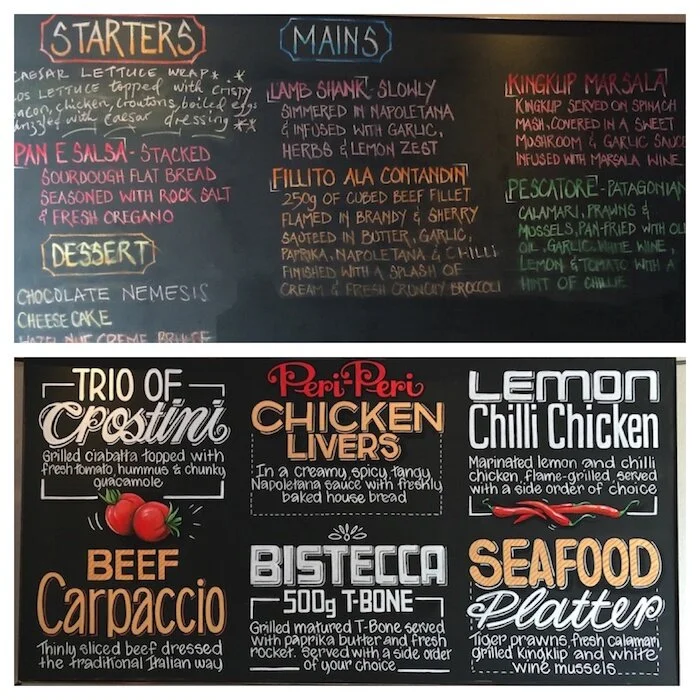 STARTERS
CAESAR LETTUCE WRAP
COS LETTUCE topped with crispy
bacon, chicken, croutons, boiled eggs
drizzled with caesar dressing
PAN E SALSA - STACKED
SOURDOUGH FLAT BREAD
SEASONED WITH ROCK SALT
& FRESH OREGANO
DESSERT
CHOCOLATE NEMESIS
CHEESE CAKE
HAZELNUT CREME BRULEE
MAINS
LAMB SHANK - SLOWLY
SIMMERED IN NAPOLETANA
& INFUSED WITH GARLIC,
HERBS & LEMON ZEST
FILLITO ALA CONTANDIN
250g OF CUBED BEEF FILLET
FLAMED IN BRANDY & SHERRY
SAUTEED IN BUTTER, GARLIC,
PAPRIKA, NAPOLETANA & CHILLI
FINISHED WITH A SPLASH OF
CREAM & FRESH CRUNCHY BROCCOLI
KINGKLIP MARSALA
KINGKLIP SERVED ON SPINACH
MASH, COVERED IN A SWEET
MUSHROOM & GARLIC SAUCE
INFUSED WITH MARSALA WINE
PESCATORE - PATAGONIAN
CALAMARI, PRAWNS &
MUSSELS, PAN-FRIED WITH
OIL, GARLIC, WHITE WINE,
LEMON & TOMATO WITH A
HINT OF CHILLIE
TRIO OF
Crostini
Grilled ciabatta topped with
fresh tomato, hummus & chunky
guacamole
Peri-Peri
CHICKEN
LIVERS
In a creamy, spicy, tangy
Napoletana sauce with freshly
baked house bread
LEMON
Chilli Chicken
Marinated lemon and chilli
chicken, flame-grilled, served
with a side order of choice
BEEF
Carpaccio
Thinly sliced beef dressed
the traditional Italian way
BISTECCA
500g T-BONE
Grilled matured T-Bone served
with paprika butter and fresh
rocket. Served with a side order
of your choice
SEAFOOD
Platter
Tiger prawns, fresh calamari,
grilled kingklip and white
wine mussels